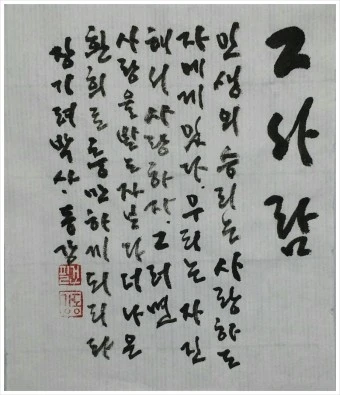 그 사람
인생의 승리는 사랑하는
자에게 있다. 우리는 자진
해서 사랑하자. 그러면
사랑을 받는 자보다 더 나은
환희로 충만하게 되리라
장기려 박사.